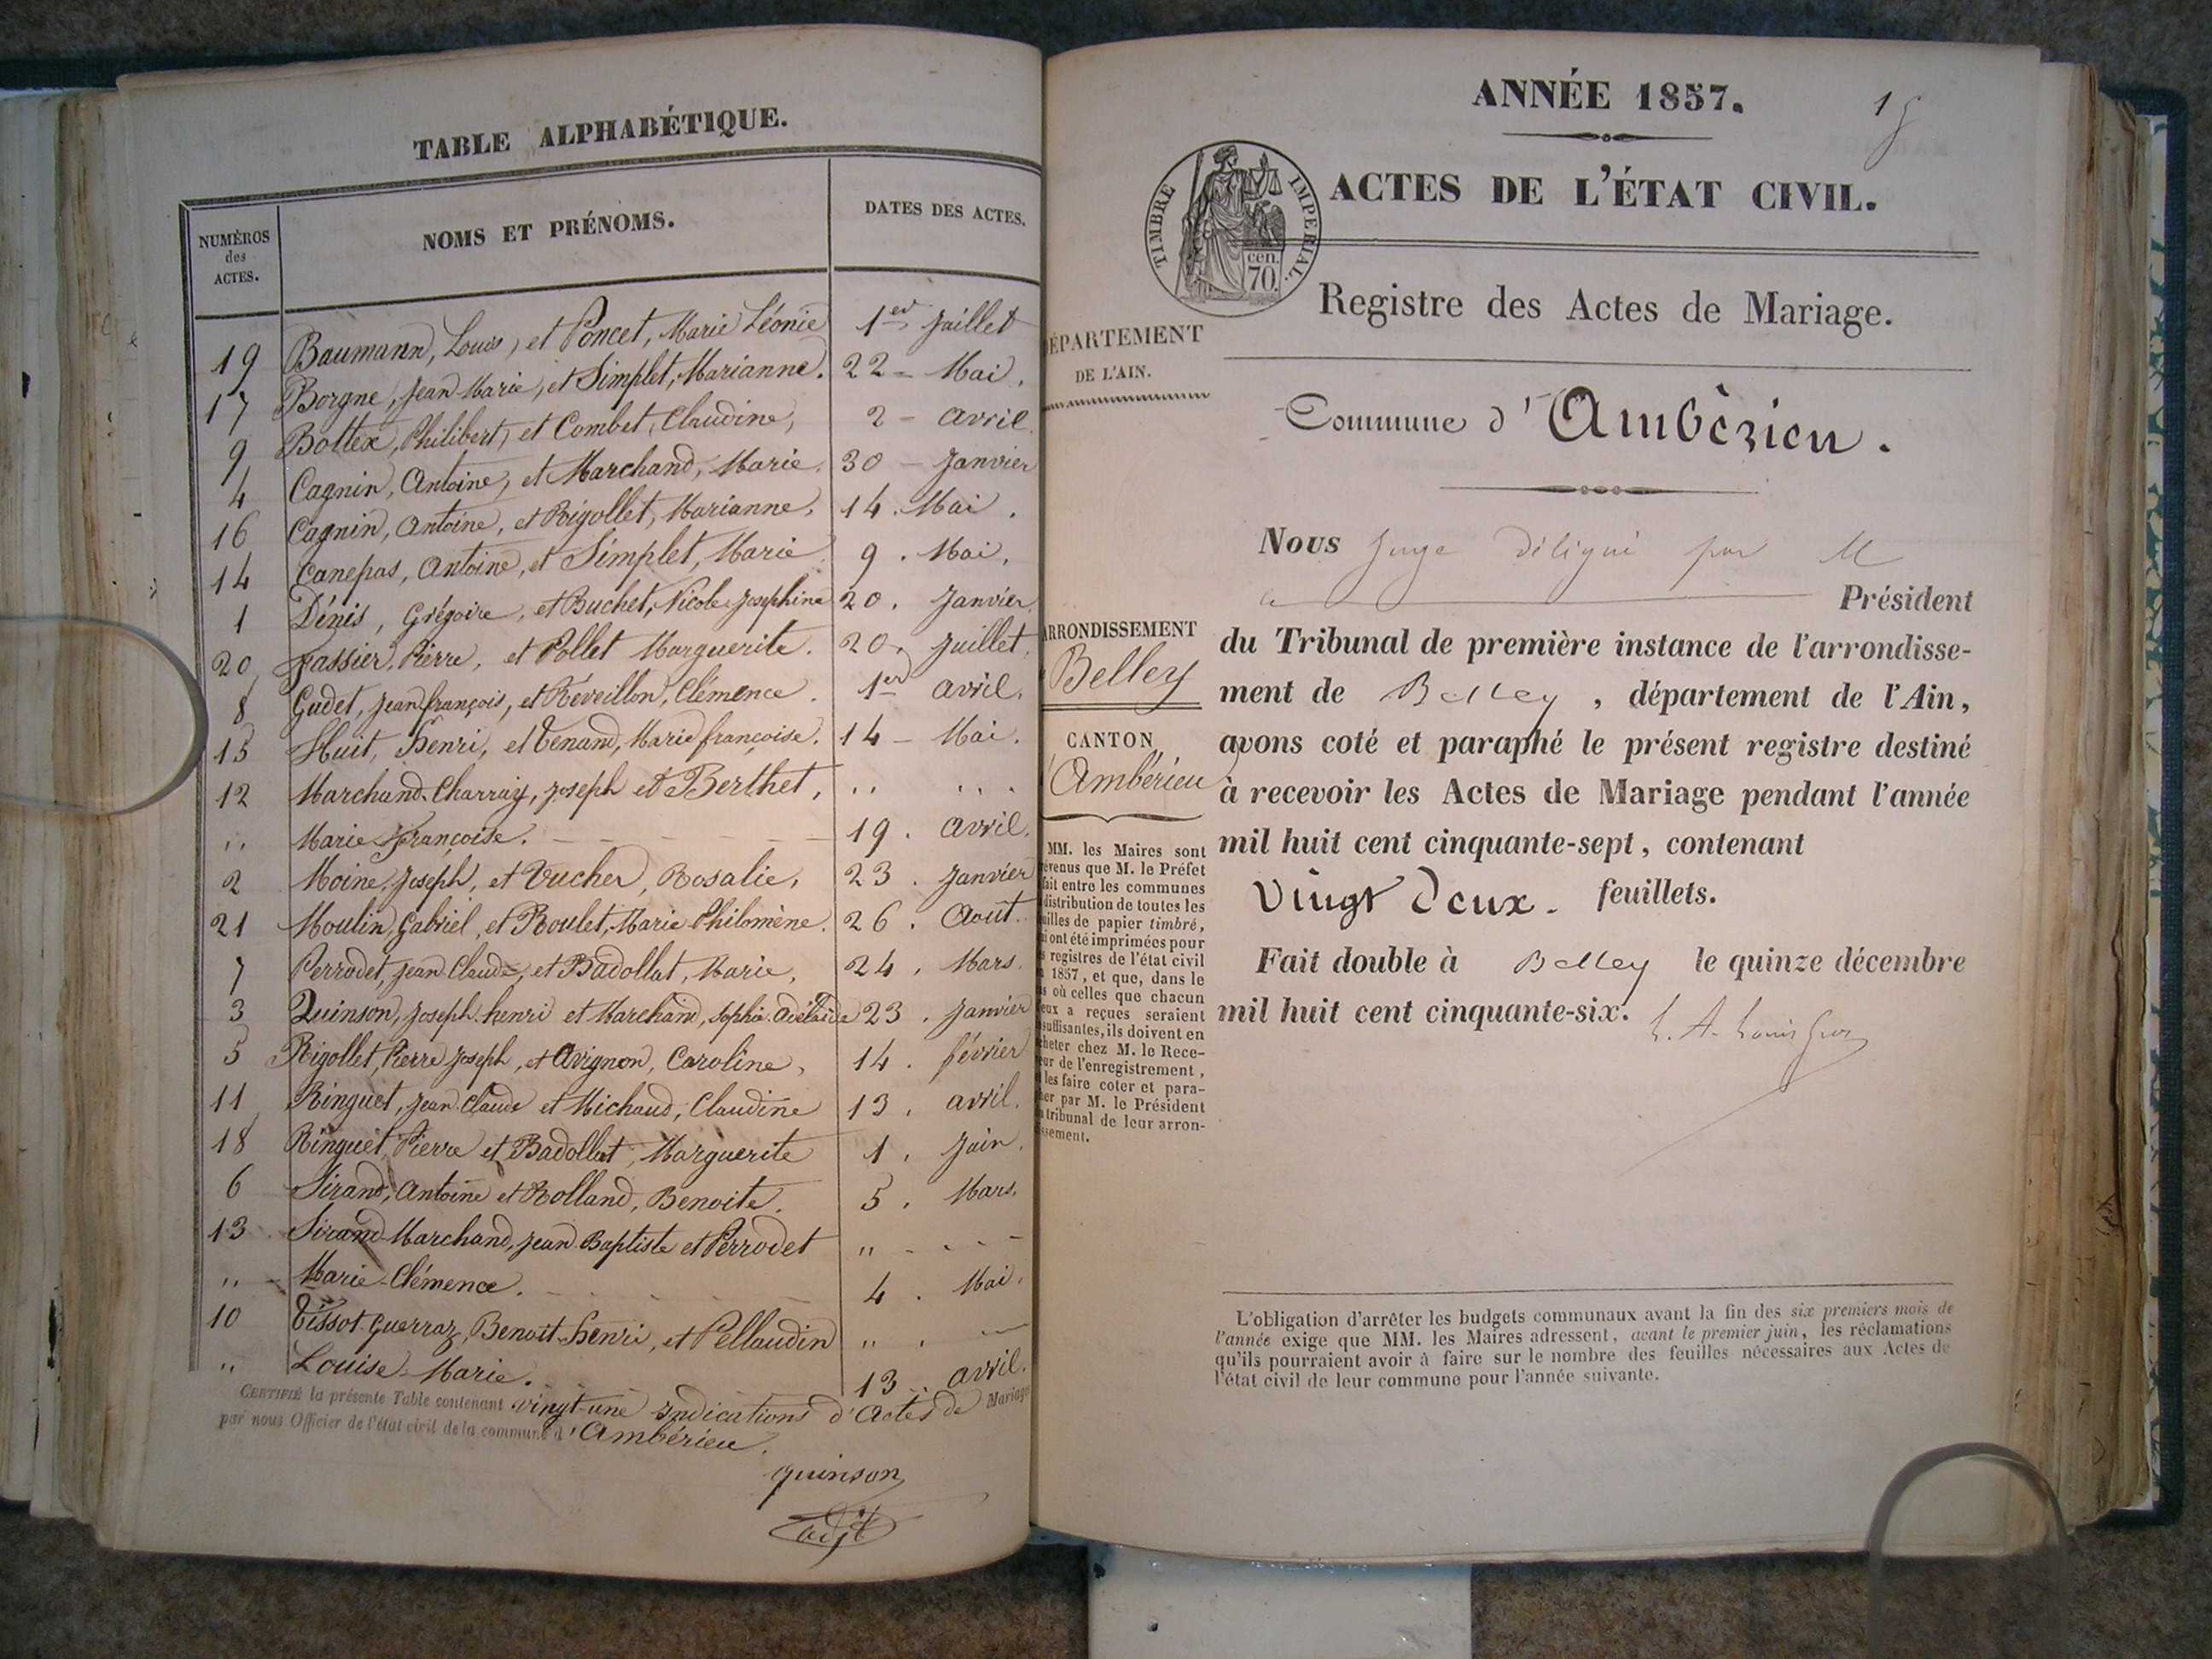 TABLE ALPHABÉTIQUE.
NUMÉROS des ACTES. NOMS ET PRÉNOMS. DATES DES ACTES.
19 Baumann, Louis, et Poncet, Marie Léonie 1er Juillet
17 Borgne, Jean Marie, et Simplet, Marianne. 22 - Mai.
9 Bottex, Philibert, et Combet, Claudine, 2 - avril.
4 Cagnin, Antoine, et Marchand, Marie. 30 - Janvier
16 Cagnin, Antoine, et Rigollet, Marianne. 14. Mai.
14 Canepas, Antoine, et Simplet, Marie 9. Mai.
1 Dénis, Grégoire, et Buchet, Nicole Josephine 20. Janvier.
20 fassier, Pierre, et Pollet Marguerite. 20. Juillet.
8 Gudet, Jean françois, et Réveillon, Clémence. 1er avril.
15 Huit, Henri, et Venand, Marie françoise. 14 - Mai.
12 Marchand-Charray, Joseph et Berthet, ,, ...
,, Marie françoise. 19. avril.
2 Moine, Joseph, et Vucher, Rosalie, 23. Janvier
21 Moulin, Gabriel, et Roulet, Marie Philomène. 26. Août.
7 Perrodet, Jean Claude, et Badollat, Marie, 24. Mars.
3 Quinson, Joseph henri et Marchand, Sophie Adélaïde 23. Janvier
5 Rigollet, Pierre Joseph, et Avignon, Caroline, 14. février
11 Ringuet, Jean Claude et Michaud, Claudine 13. avril.
18 Ringuet, Pierre et Badollat, Marguerite 1. Juin.
6 Sirand, Antoine et Rolland, Benoite. 5. Mars.
13 Sirand-Marchand, Jean-Baptiste et Perrodet ,, - - -
,, Marie-Clémence. 4. Mai.
10 Tissot-Guerraz, Benoit-henri, et Pellaudin ,, .
,, Louise-Marie. 13. avril.
CERTIFIÉ la présente Table contenant vingt-une indications d'Actes de Mariage
par nous Officier de l'état civil de la commune d'Ambérieu.
quinson
adjt
ANNÉE 1857. 1
ACTES DE L'ÉTAT CIVIL.
TIMBRE IMPERIAL.
cen.
70.
Registre des Actes de Mariage.
ÉPARTEMENT
DE L'AIN.
Commune d'Ambérieu.
Nous Juge délégué par M
le Président
du Tribunal de première instance de l'arrondisse-
ment de Belley, département de l'Ain,
avons coté et paraphé le présent registre destiné
à recevoir les Actes de Mariage pendant l'année
mil huit cent cinquante-sept, contenant
vingt deux. feuillets.
Fait double à Belley le quinze décembre
mil huit cent cinquante-six.
RRONDISSEMENT
Belley
CANTON
Ambérieu
MM. les Maires sont
évenus que M. le Préfet
fait entre les communes
distribution de toutes les
uilles de papier timbré,
i ont été imprimées pour
s registres de l'état civil
1857, et que, dans le
s où celles que chacun
eux a reçues seraient
suffisantes, ils doivent en
cheter chez M. le Rece-
eur de l'enregistrement,
les faire coter et para-
her par M. le Président
tribunal de leur arron-
ssement.
L'obligation d'arrêter les budgets communaux avant la fin des six premiers mois de
l'année exige que MM. les Maires adressent, avant le premier juin, les réclamations
qu'ils pourraient avoir à faire sur le nombre des feuilles nécessaires aux Actes de
l'état civil de leur commune pour l'année suivante.